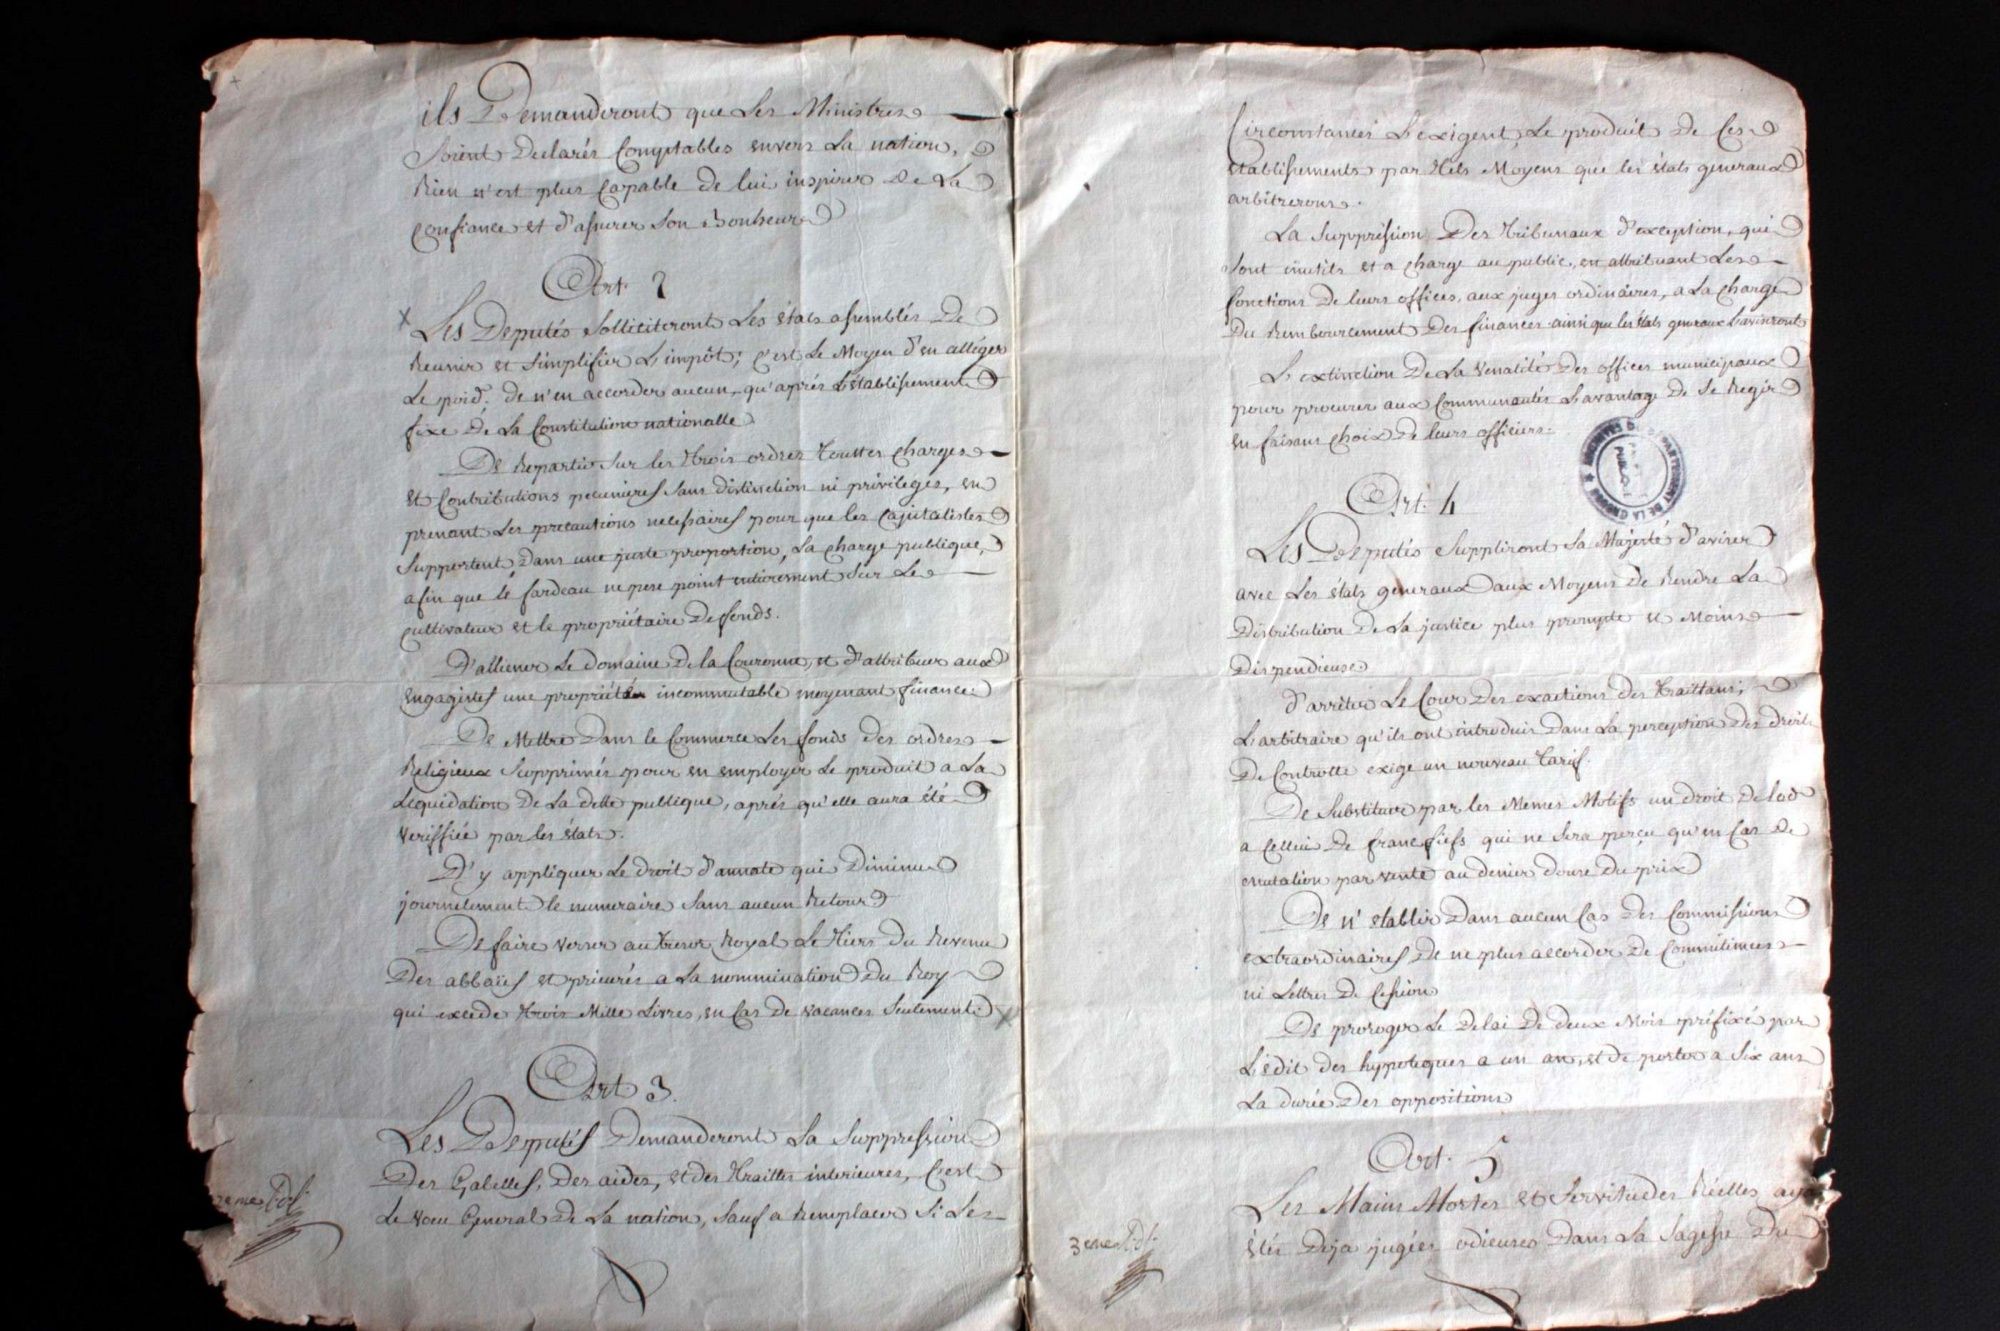 ils Demanderont que Les Ministres
Soient Declarés Comptables envers La nation,
Rien n'est plus Capable de lui inspirer De La
Confiance et d'assurer Son Bonheur
Art. 2
Les Deputés Solliciteront Les états assemblés De
Reunir et Simplifier L'impôt; C'est Le Moyen d'en alléger
Le poid. de n'en accorder aucun, qu'aprés L'établissement
fixe De La Constitution nationalle
De Repartir Sur les trois ordres touttes Charges
et Contributions pecunieres Sans distinction ni priviléges, en
prenant Les precautions necessaires pour que les Capitalistes
Supportent Dans une juste proportion, La charge publique,
afin que le fardeau ne pese point entierement Sur Le
Cultivateur et le propriétaire De fonds.
D'alliener Le domaine De la Couronne, et d'attribuer aux
engagistes une propriété incommutable moyenant finance.
De Mettre Dans le Commerce Les fonds des ordres
Religieux Supprimés pour en employer Le produit a La
Liquidation De La dette publique, aprés qu'elle aura été
Veriffiée par les états.
D'y appliquer Le droit d'annate qui Diminue
journelement le numeraire Sans aucun Retour
De faire verser au tresor Royal Le tiers Du Revenu
Des abbaïes et prieurés a La nommination Du Roy
qui excede trois Mille Livres, en Cas De vacances Seulement.
Art 3.
Les Deputés Demanderont La Suppression
Des Gabelles, Des aides, et des traittes interieures, C'est
Le vœu General De La nation, Sauf a Remplacer Si Les
Circonstances L'exigent, Le produit De Ces
établissements par tels Moyens que les états generaux
arbitrerons.
La Suppression Des tribunaux d'exception, qui
Sont inutils et a charge au public, en attribuant Les
fonctions De leurs offices, aux juges ordinaires, a La charge
Du Remboursement Des finances ainsi que les états generaux L'aviseront
L'extinction De La Venalité Des offices municipaux
pour procurer aux Communautés L'avantage De Se Regir
en faisant choix De leurs officiers.
ARCHIVES DU DEPARTEMENT DE LA
Art. 4
Les Deputés Suppliront Sa Majesté d'aviser
avec Les états generaux aux Moyens De Rendre La
Distribution De La justice plus prompte et Moins
Dispendieuse
d'arrêter Le Cour Des exactions des traittans;
L'arbitraire qu'ils ont introduis Dans La perception Des droits
De Controlle exige un nouveau tarif.
De Substituer par les Memes Motifs un droit De lod
a Cellui De franc fiefs qui ne Sera perçu qu'en Cas De
mutation par vente au denier douze Du prix
De n'établir Dans aucun Cas Des Commissions
extraordinaires De ne plus accorder De Committimus
ni Lettres De Cession
De proroger Le Delai De deux Mois préfixé par
L'édit des hypoteques a un an, et de porter a Six ans
La durée Des oppositions
Art. 5
Les Mains Mortes et Servitudes Réelles
étés Deja jugées odieuses Dans La Sagesse Du
3eme